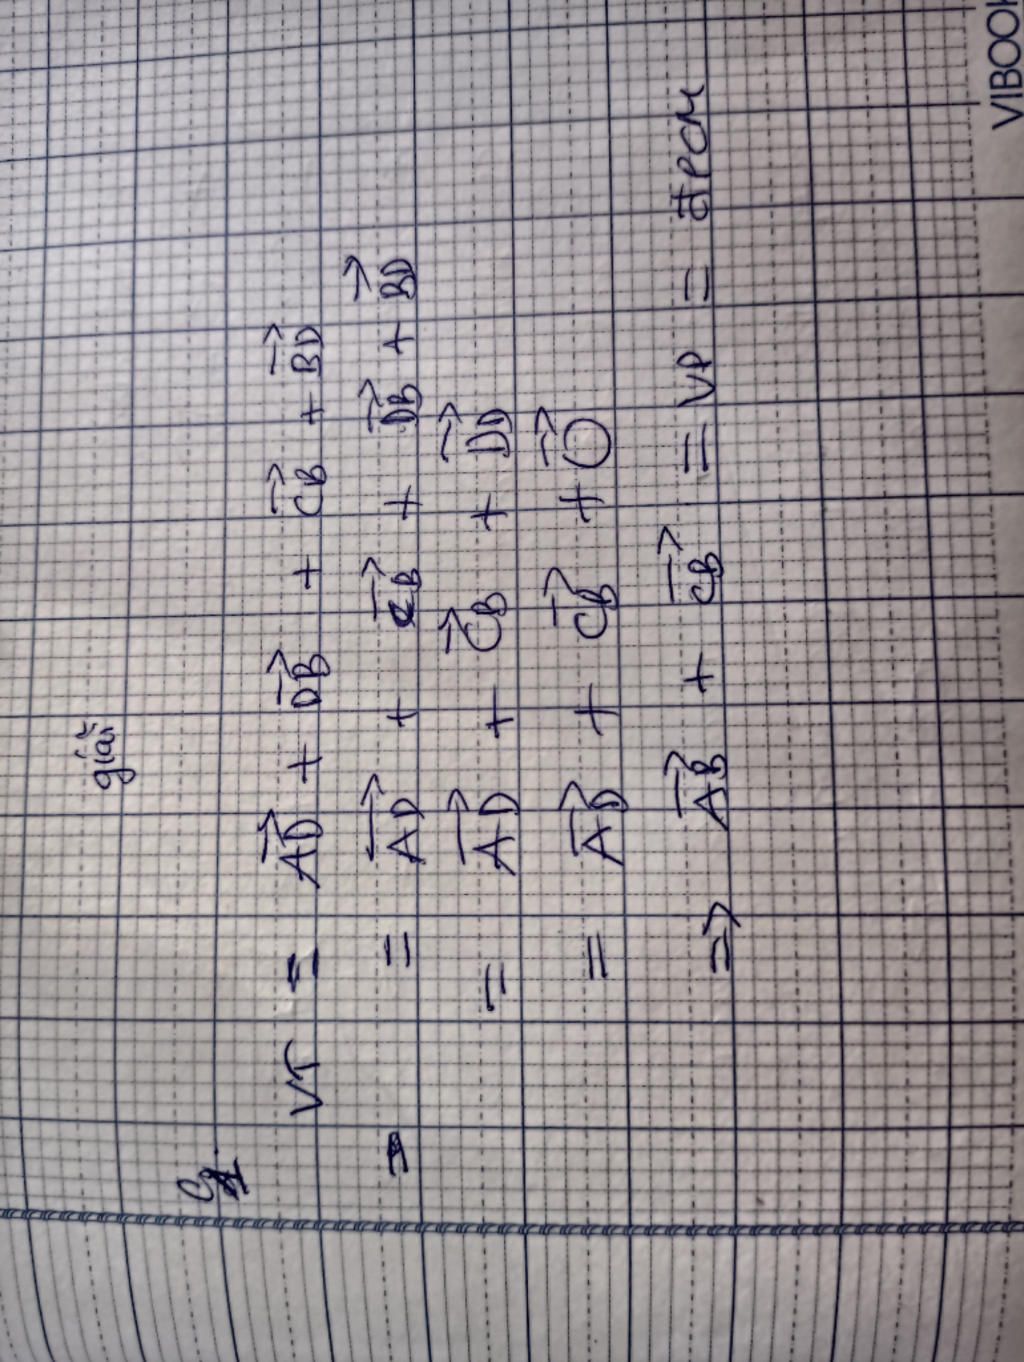 giải
C1
VT = AD→ + DB→ + CB→ + BD→
= AD→ + CB→ + DB→ + BD→
= AD→ + CB→ + DD→
= AD→ + CB→ + O→
=> AB→ + CB→ = VP = đPCM
VIBOOK